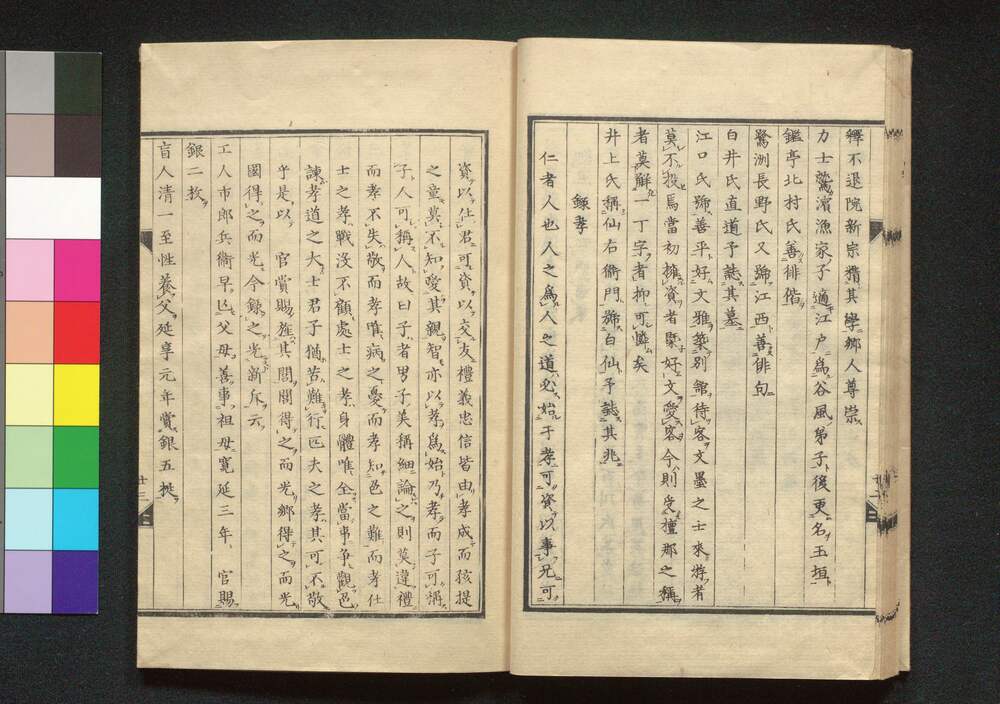 釋不退院新宗猶其學鄉人尊崇
力士鷲濱漁家子適江户爲谷風弟子後更名玉垣
鑑亭北村氏善徘偕
鷺洲長野氏又號江西善俳句
白井氏直道予誌其墓
江口氏號善平好文雅築別館待客文墨之士來游者
莫不投焉當初擁資者槩好文愛客今則受檀那之稱
者莫解一丁字者抑可憐矣
井上氏稱仙右衛門號白仙予誌其兆
錄孝
仁者人也人之爲人之道必始于孝可資以事兄可
資以仕君可資以交友禮義忠信皆由孝成而孩提
之童莫不知愛其親智亦以孝爲始乃孝而子可稱
子人可稱人故曰子者男子美稱細論之則莫違禮
而孝不失敬而孝唯病之憂而孝知色之難而孝仕
士之孝戰沒不顧處士之孝身體唯全當事爭觀色
諫孝道之大士君子猶苦難行匹夫之孝其可不敬
乎是以 官賞賜旌其閭閭得之而光鄉得之而光
國得之而光今錄之光新斥云
工人市郎兵衞早亾父母善事祖母寬延三年 官賜
銀二枚
盲人清一至性養父延享元年賞銀五挺
十二
十三